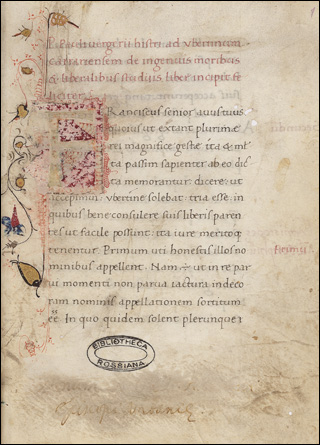 P. Pauli uergerii histri ad ubertinum
carrariensem de ingenuis moribus
& liberalibus studiis liber incipit fe
liciter.
Franciscus senior auus tuus
cuius ut extant plurimæ
res magnifice gestæ ita & m̄l
ta passim sapienter ab eo dic
ta memorantur: dicere: ut
accepimus: ubertine solebat: tria esse: in
quibus bene consulere suis liberis paren
tes ut facile possunt: ita iure merito q;
tenentur. Primum ut honestis illos no
minibus appellent. Nam ÷ ut in re par
ui momenti non parua iactura indeco
ram nominis appellationem sortitum
eē. In quo quidem solent plerunque:
Primus
BIBLIOTHECA
ROSSIANA